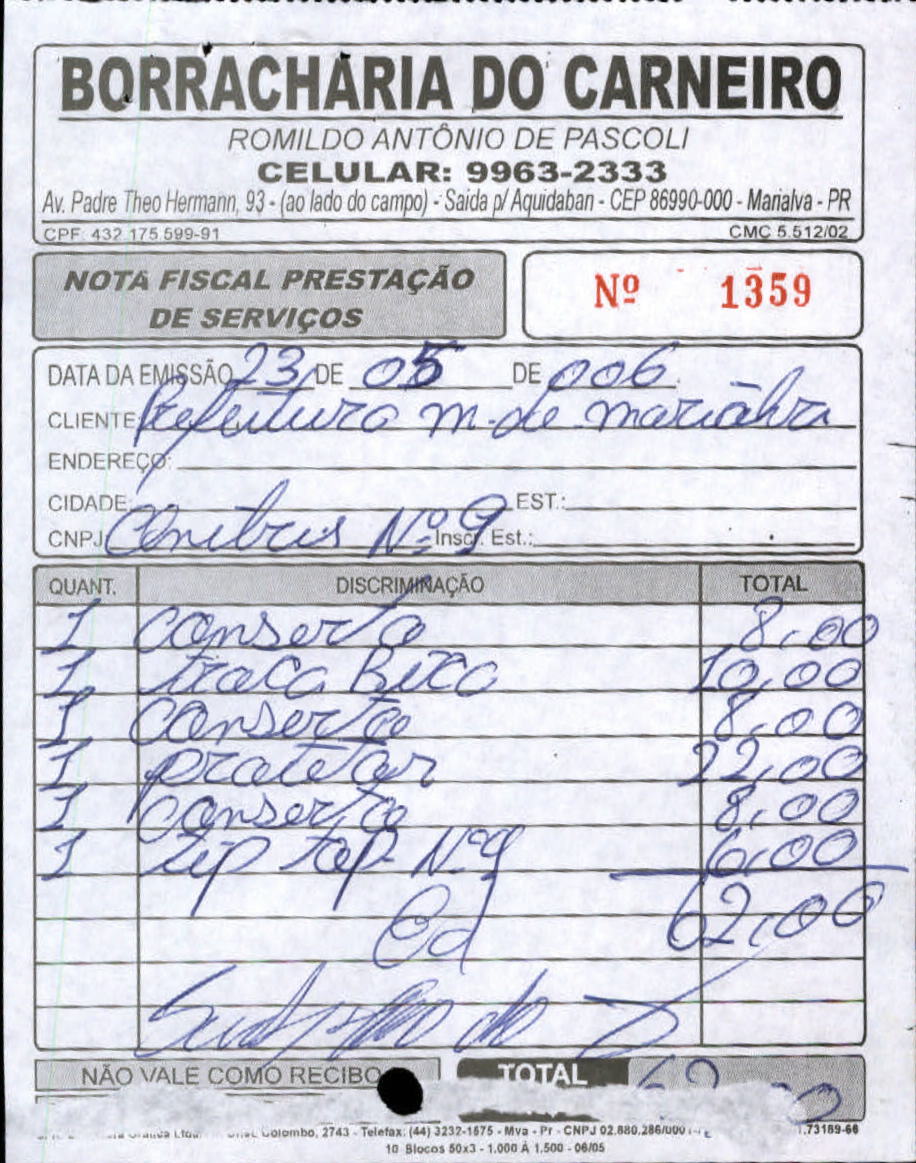 BORRACHARIA DO CARNEIRO
ROMILDO ANTÔNIO DE PASCOLI
CELULAR: 9963-2333
Av. Padre Theo Hermann, 93 - (ao lado do campo) - Saida p/ Aquidaban - CEP 86990-000 - Marialva - PR
CPF: 432.175.599-91 CMC 5.512/02
NOTA FISCAL PRESTAÇÃO
DE SERVIÇOS
Nº 1359
DATA DA EMISSÃO 23 DE 05 DE 006
CLIENTE: Prefeitura m. de marialva
ENDEREÇO:
CIDADE: EST.:
CNPJ: Nº 9 Inscr. Est.:
QUANT. DISCRIMINAÇÃO TOTAL
1 conserto 8,00
1 troca Bico 10,00
1 conserto 8,00
1 protetor 22,00
1 conserto 8,00
1 tip top Nº 9 6,00
62,00
NÃO VALE COMO RECIBO
TOTAL 62
Colombo, 2743 - Telefax: (44) 3232-1575 - Mva - Pr - CNPJ 02.880.286/0001
10 Blocos 50x3 - 1.000 À 1.500 - 06/05